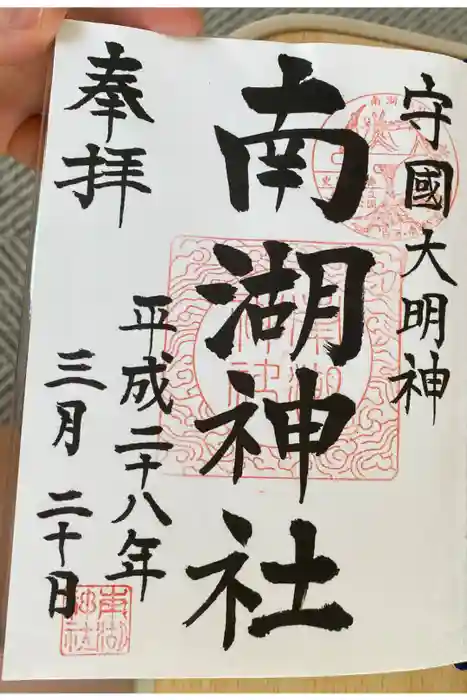 守國大明神
南湖神社
奉拝
平成二十八年
三月二十日
南湖神社